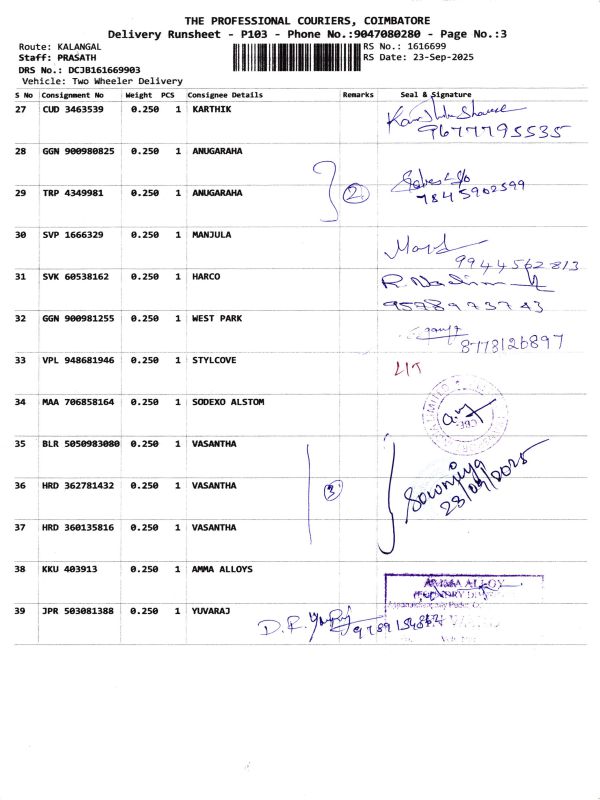 THE PROFESSIONAL COURIERS, COIMBATORE
Delivery Runsheet - P103 - Phone No.:9047080280 - Page No.:3
Route: KALANGAL
RS No.: 1616699
Staff: PRASATH
RS Date: 23-Sep-2025
DRS No.: DCJB161669903
Vehicle: Two Wheeler Delivery
S No Consignment No Weight PCS Consignee Details Remarks Seal & Signature
27 CUD 3463539 0.250 1 KARTHIK
9677795535
28 GGN 900980825 0.250 1 ANUGARAHA
29 TRP 4349981 0.250 1 ANUGARAHA 2 7845902599
30 SVP 1666329 0.250 1 MANJULA
9944562813
31 SVK 60538162 0.250 1 HARCO
32 GGN 900981255 0.250 1 WEST PARK
8778126897
33 VPL 948681946 0.250 1 STYLCOVE
34 MAA 706858164 0.250 1 SODEXO ALSTOM
35 BLR 5050983080 0.250 1 VASANTHA
36 HRD 362781432 0.250 1 VASANTHA 3 23/09/2025
37 HRD 360135816 0.250 1 VASANTHA
38 KKU 403913 0.250 1 AMMA ALLOYS
AMMA ALLOY
39 JPR 503081388 0.250 1 YUVARAJ